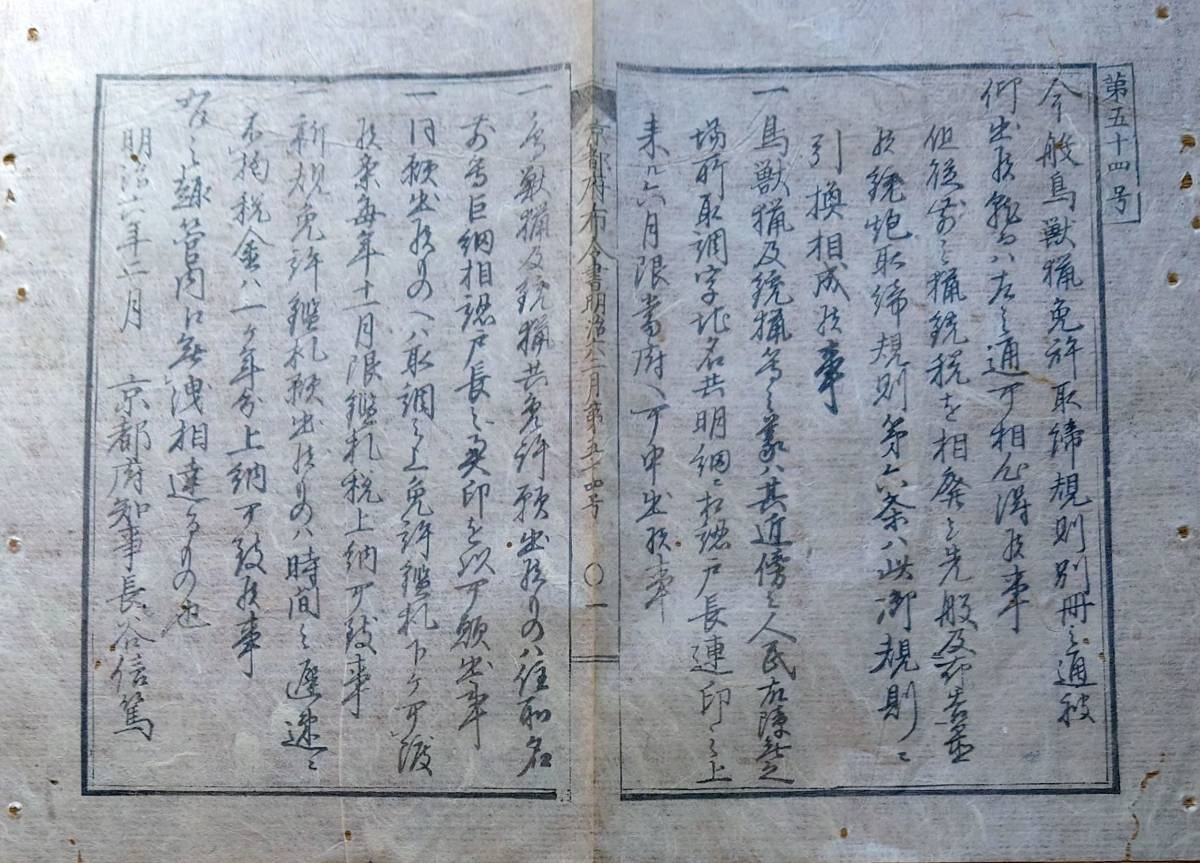 第五十四号
今般鳥獣猟免許取締規則別冊之通被
仰出候就而ハ左之通可相心得候事
但従前之猟銃税を相廃之先般及布告置
候銃炮取締規則第六条ハ此御規則ニ
引換相成候事
一鳥獣猟及銃猟等之義ハ其近傍之人民故障無之
場所取調字地名共明細ニ相認戸長連印之上
来ル六月限当府へ可申出候事
京都府布令書明治六二月第五十四号 〇一
一鳥獣猟及銃猟共免許願出候ものハ住所名
前等巨細相認戸長之奥印を以可願出事
一同願出候ものへハ取調之上免許鑑札下ケ可渡
候条毎年十一月限鑑札税上納可致事
一新規免許鑑札願出候ものハ時間之遅速ニ
不拘税金ハ一ケ年分上納可致候事
右之趣管内江無洩相達るもの也
明治六年二月 京都府知事長谷信篤